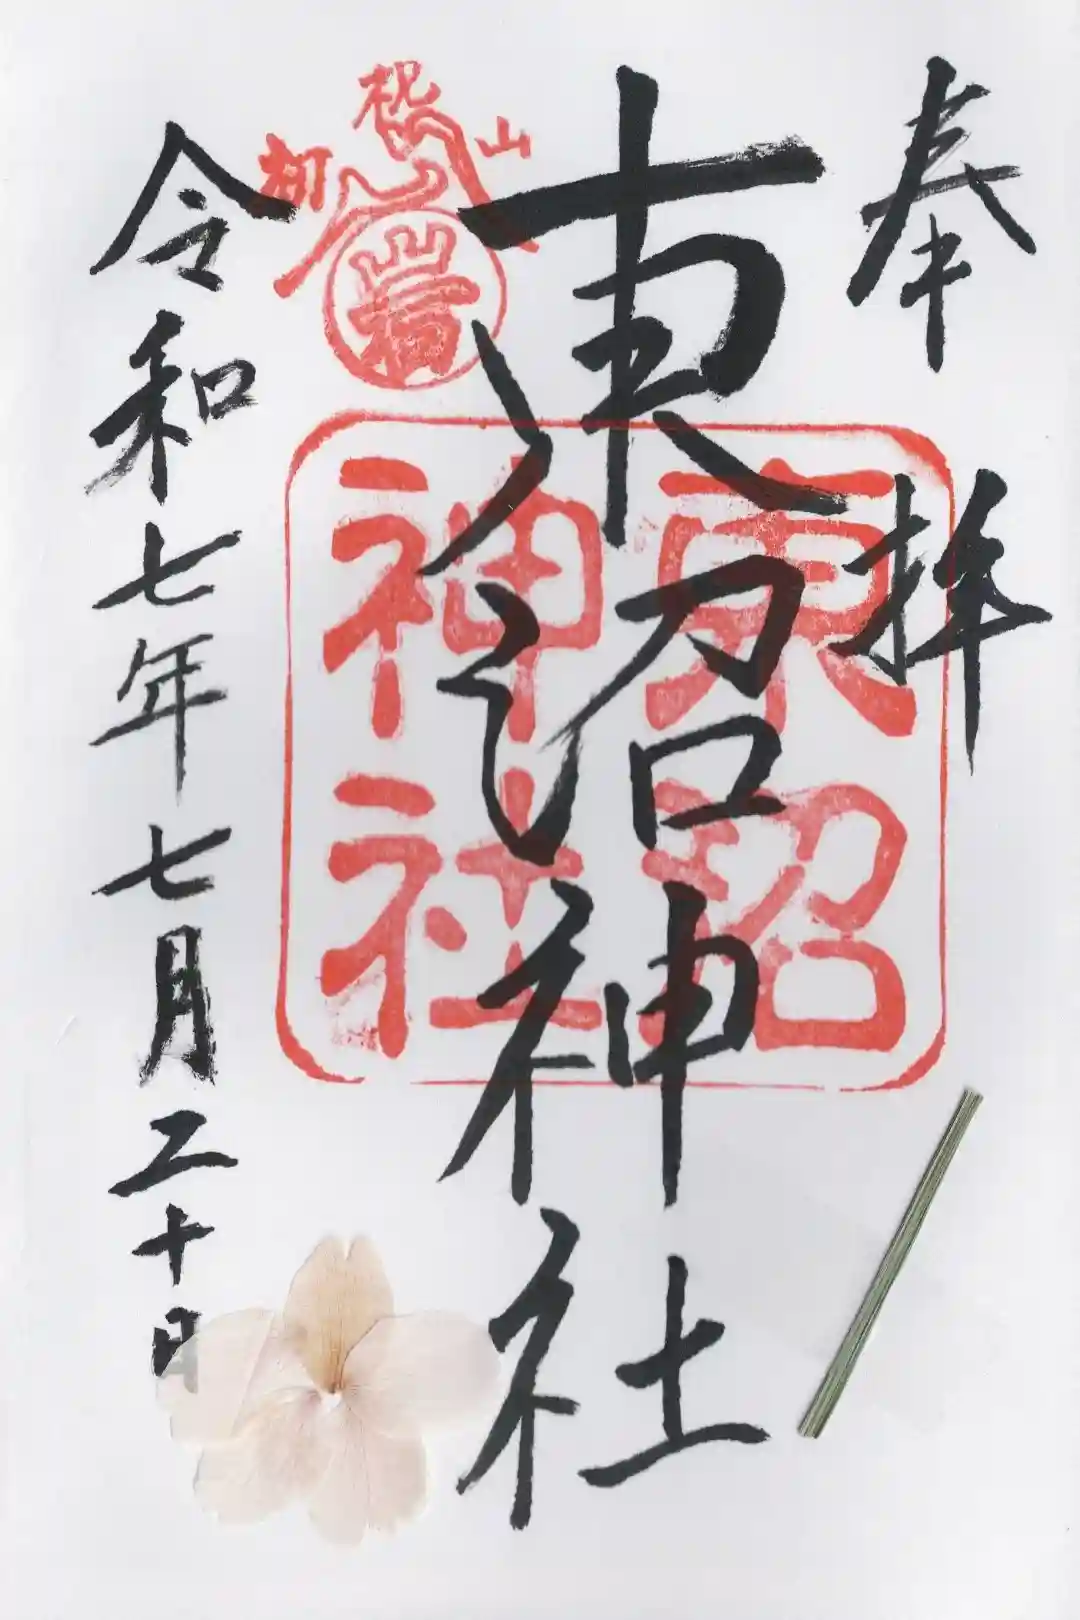 奉拝
東沼神社
令和七年七月二十日
東沼
神社